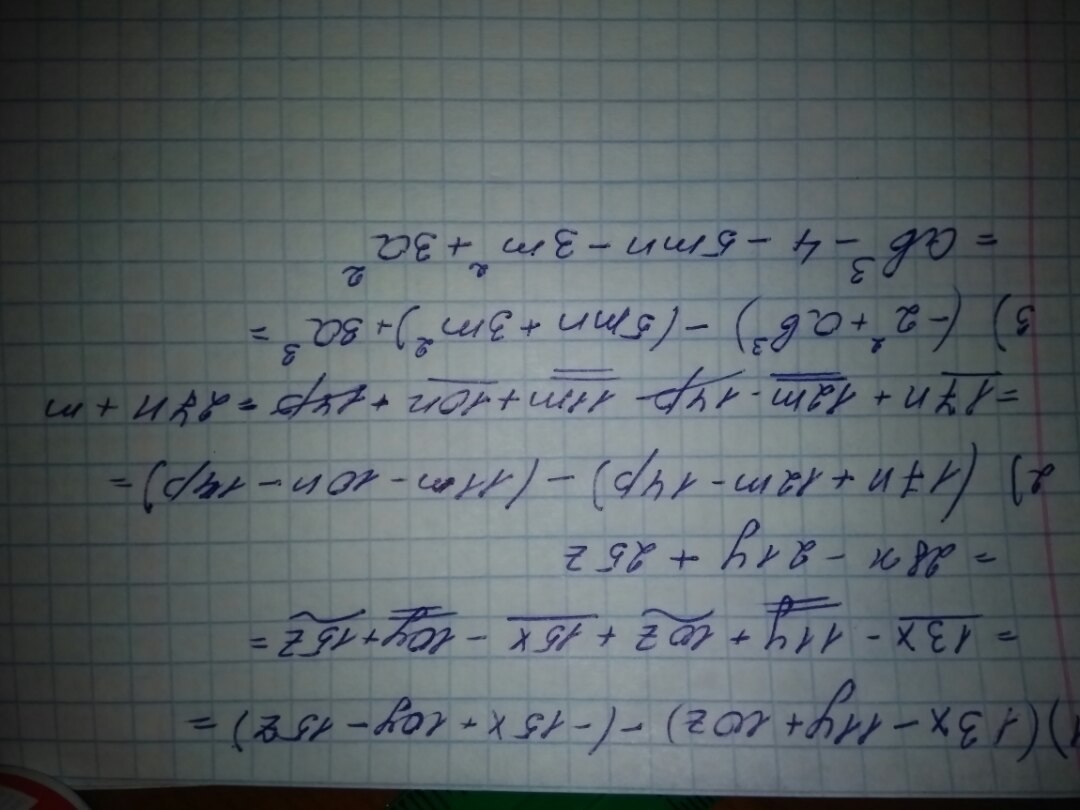 1) (13x - 11y + 10z) - (-15x + 10y - 15z) =
= 13x - 11y + 10z + 15x - 10y + 15z =
= 28x - 21y + 25z
2) (17n + 12m - 14p) - (11m - 10n - 14p) =
= 17n + 12m - 14p - 11m + 10n + 14p = 27n + m
3) (-2² + ab³) - (5mn + 3m²) + 3a³ =
= ab³ - 4 - 5mn - 3m² + 3a²